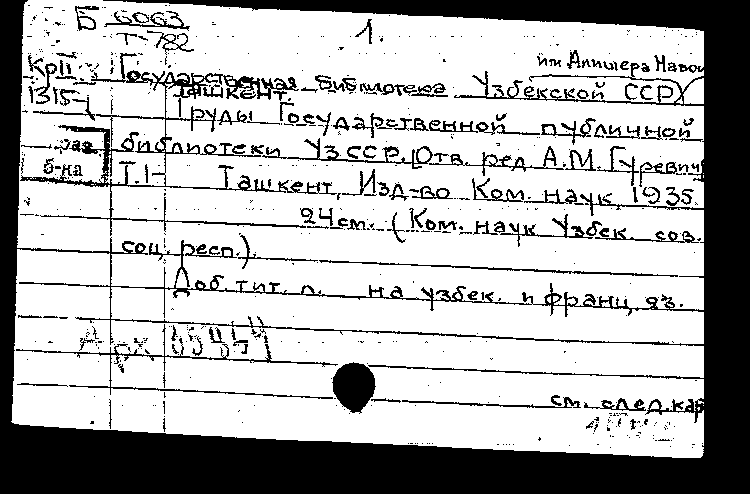 Б 6063
Т-782
1.
им Алишера Навои
КрII 3 Государственная библиотека Узбекской ССР
Ташкент.
1315-( Труды Государственной публичной
раз библиотеки УзССР. [Отв. ред А.М. Гуревич
б-ка Т.1- Ташкент, Изд-во Ком. наук, 1935
24см. (Ком. наук Узбек. сов.
соц. респ.).
Доб. тит. л. на узбек. и франц. яз.
Арх
см. след.кар